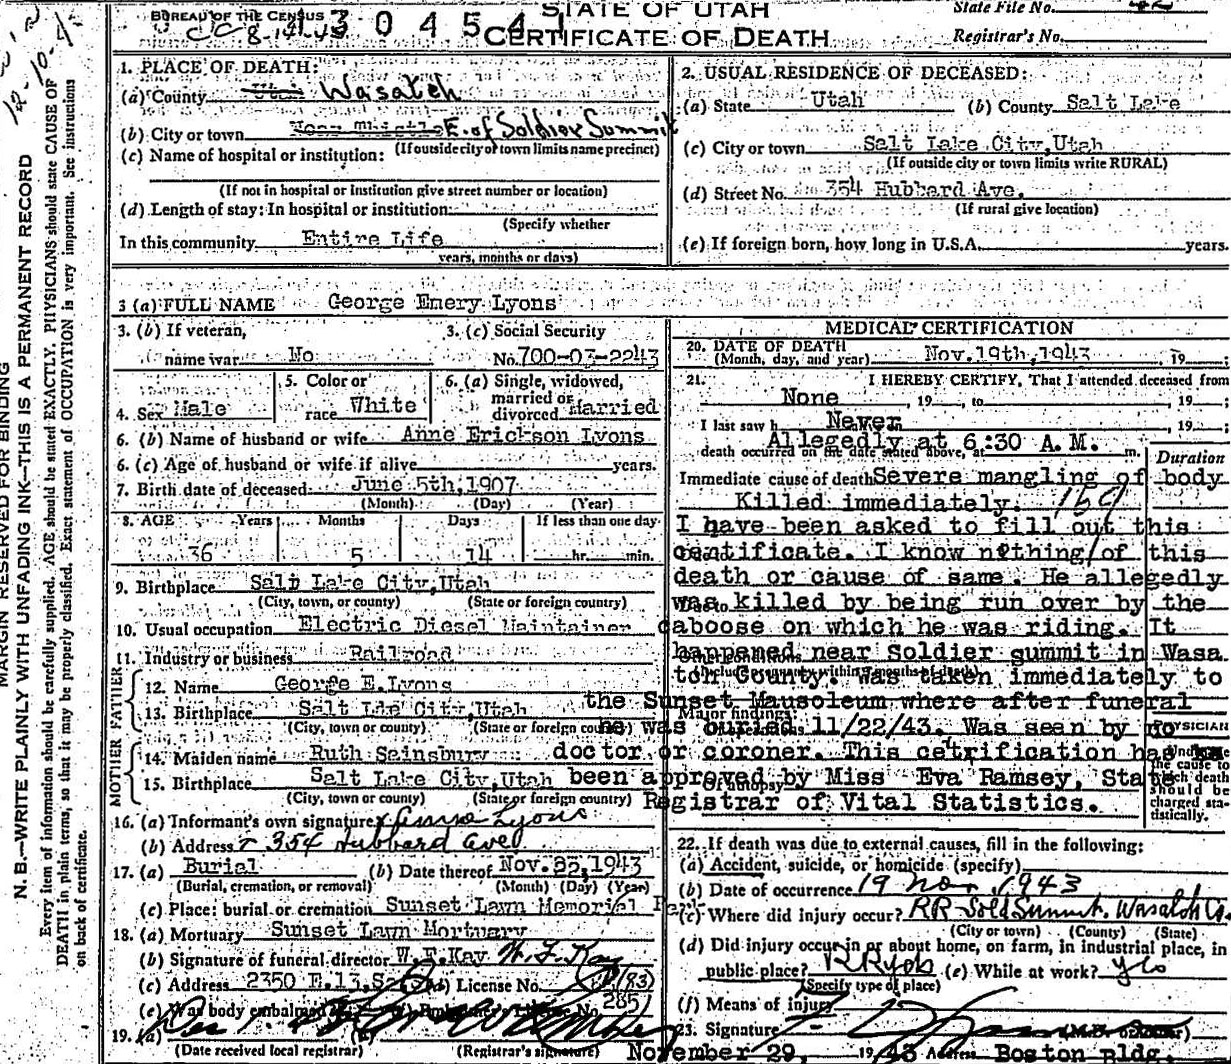 STATE OF UTAH
BUREAU OF THE CENSUS
304541
CERTIFICATE OF DEATH
State File No.
Registrar's No.
MARGIN RESERVED FOR BINDING
N. B.—WRITE PLAINLY WITH UNFADING INK—THIS IS A PERMANENT RECORD
Every item of information should be carefully supplied. AGE should be stated EXACTLY. PHYSICIANS should state CAUSE OF
DEATH in plain terms, so that it may be properly classified. Exact statement of OCCUPATION is very important. See instructions
on back of certificate.
1. PLACE OF DEATH:
(a) County Utah Wasatch
(b) City or town Near Thistle E. of Soldier Summit
(If outside city or town limits name precinct)
(c) Name of hospital or institution:
(If not in hospital or institution give street number or location)
(d) Length of stay: In hospital or institution
(Specify whether
In this community Entire Life
years, months or days)
2. USUAL RESIDENCE OF DECEASED:
(a) State Utah (b) County Salt Lake
(c) City or town Salt Lake City, Utah
(If outside city or town limits write RURAL)
(d) Street No. 354 Hubbard Ave.
(If rural give location)
(e) If foreign born, how long in U.S.A. years.
3 (a) FULL NAME George Emery Lyons
3. (b) If veteran,
name war No
3. (c) Social Security
No. 700-03-2243
4. Sex Male
5. Color or
race White
6. (a) Single, widowed,
married or
divorced Married
6. (b) Name of husband or wife Anne Erickson Lyons
6. (c) Age of husband or wife if alive years.
7. Birth date of deceased June 5th, 1907
(Month) (Day) (Year)
8. AGE Years Months Days If less than one day
36 5 14 hr. min.
9. Birthplace Salt Lake City, Utah
(City, town, or county) (State or foreign country)
10. Usual occupation Electric Diesel Maintainer
11. Industry or business Railroad
FATHER
12. Name George E. Lyons
13. Birthplace Salt Lae City, Utah
(City, town, or county) (State or foreign country)
MOTHER
14. Maiden name Ruth Sainsbury
15. Birthplace Salt Lake City, Utah
(City, town or county) (State or foreign country)
16. (a) Informant's own signature Anne Lyons
(b) Address 354 Hubbard Ave
17. (a) Burial (b) Date thereof Nov. 22, 1943
(Burial, cremation, or removal) (Month) (Day) (Year)
(c) Place: burial or cremation Sunset Lawn Memorial Park
18. (a) Mortuary Sunset Lawn Mortuary
(b) Signature of funeral director W. F. Kay W. F. Kay
(c) Address 2350 E. 13 S. License No. (83)
(e) Was body embalmed 285
19. (a)
(Date received local registrar) (Registrar's signature)
MEDICAL CERTIFICATION
20. DATE OF DEATH
(Month, day, and year) Nov. 19th, 1943 19 ;
21. I HEREBY CERTIFY, That I attended deceased from
None , 19 , to , 19 ;
I last saw h Never , 19 ;
Allegedly at 6:30 A.M.
death occurred on the date stated above, at m.
Duration
Immediate cause of death Severe mangling of body
Killed immediately. 169
I have been asked to fill out this
certificate. I know nothing of this
death or cause of same. He allegedly
was killed by being run over by the
caboose on which he was riding. It
happened near Soldier summit in Wasa
tch County. Was taken immediately to
the Sunset Mausoleum where after funeral
he was buried 11/22/43. Was seen by no
doctor or coroner. This cetrification has
been approved by Miss Eva Ramsey, State
Registrar of Vital Statistics.
Other conditions
Major findings:
Of autopsy
PHYSICIAN
Underline
the cause to
which death
should be
charged sta-
tistically.
22. If death was due to external causes, fill in the following:
(a) Accident, suicide, or homicide (specify)
(b) Date of occurrence 19 Nov 1943
(c) Where did injury occur? RR Sold Summit. Wasatch Co.
(City or town) (County) (State)
(d) Did injury occur in or about home, on farm, in industrial place, in
public place? RR job (e) While at work? yes
(Specify type of place)
(f) Means of injury
23. Signature (M.D. or other)
November 29, 1943 Address Boston Bldg.